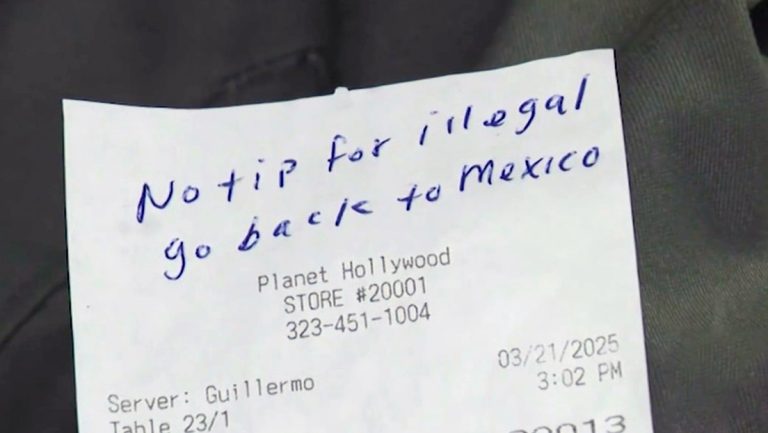 No tip for illegal
go back to Mexico
Planet Hollywood
STORE #20001
323-451-1004
03/21/2025
Server: Guillermo
3:02 PM
Table 23/1